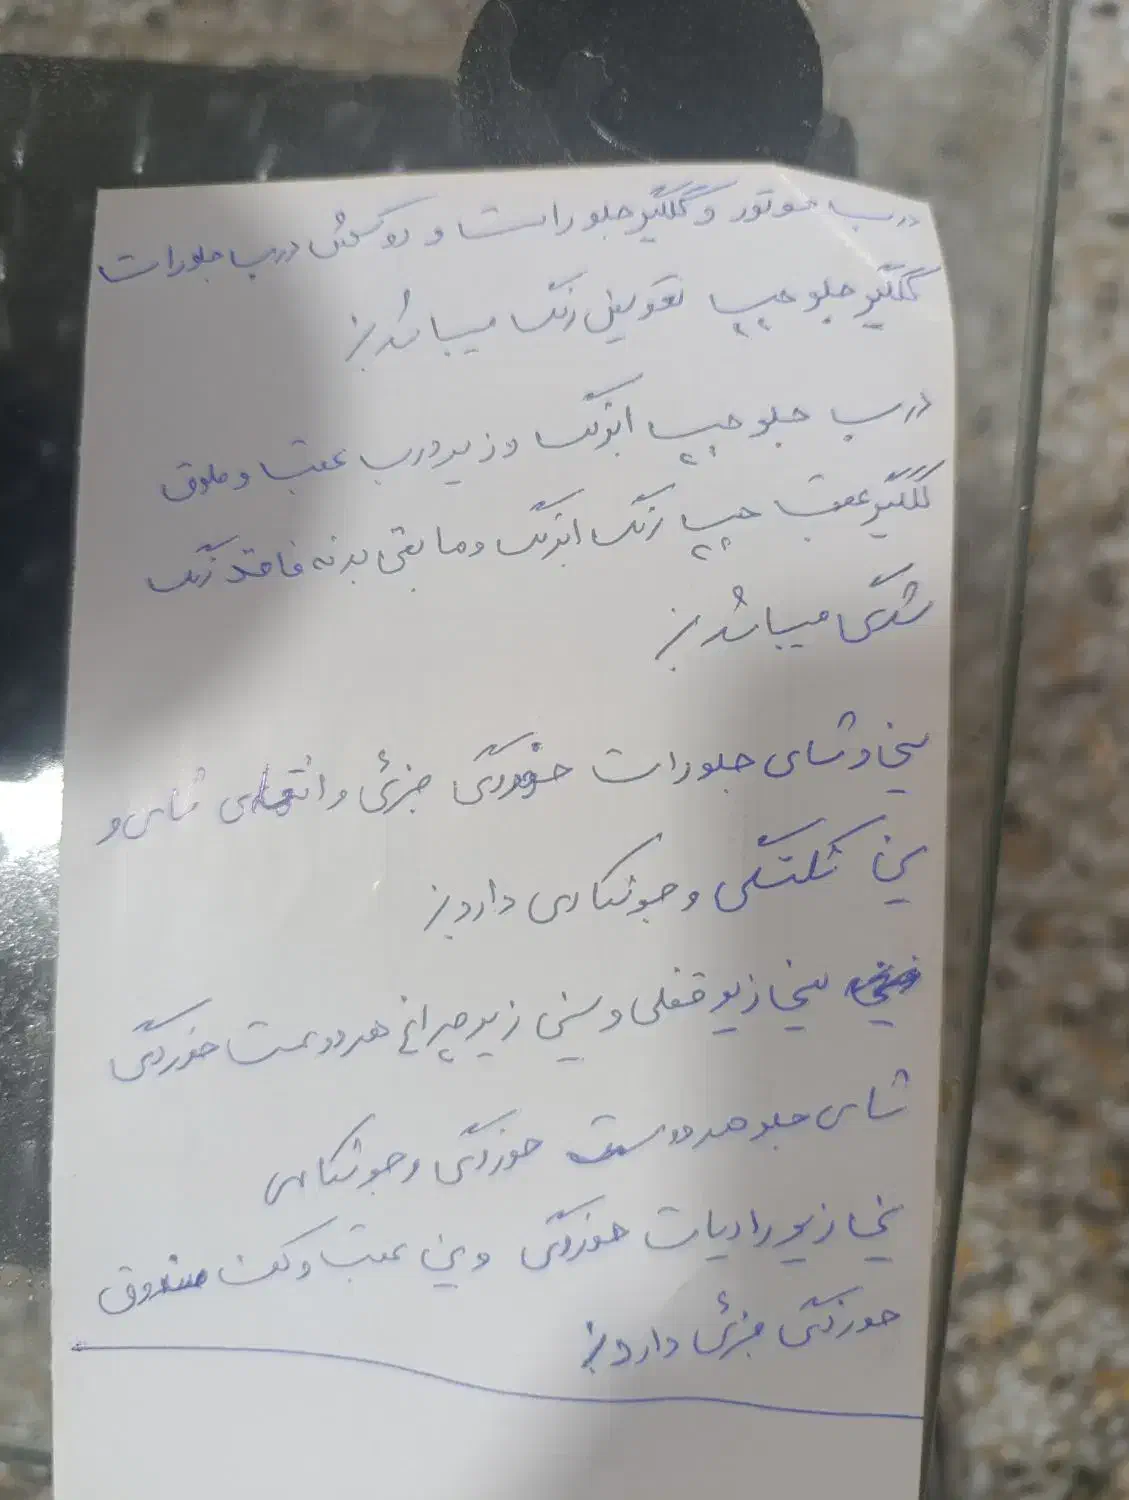 درب موتور و گلگیر جلو راست و روکش درب جلو راست
گلگیر جلو چپ تعویض رنگ میباشد
درب جلو چپ ابرنگ و زیر درب عقب و
گلگیر عقب چپ رنگ ابرنگ و مابقی بدنه فاقد رنگ
شدگی میباشد
سینی و شاسی جلو راست خوردگی جزئی و انتهای شاسی و
سینی شکستگی و جوشکاری دارد
سینی زیر قفلی و سینی زیر چراغ هر دو سمت خوردگی
شاسی جلو هر دو سمت خوردگی و جوشکاری
سینی زیر رادیات خوردگی و سینی عقب و کف صندوق
خوردگی جزئی دارد